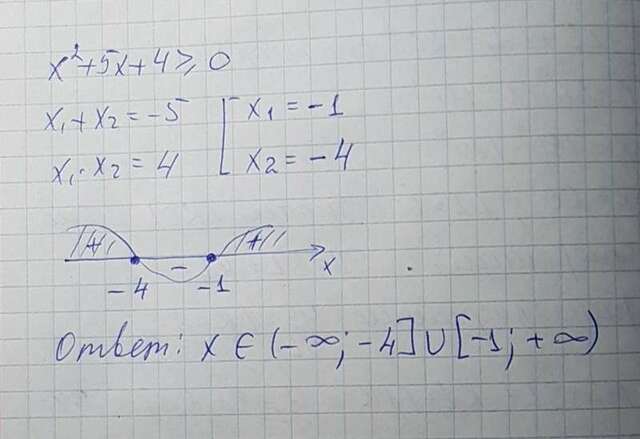 x²+5x+4≥0
x₁+x₂=-5 [ x₁=-1
x₁·x₂=4 x₂=-4
+ - + x
-4 -1
Ответ: x ∈ (-∞; -4] ∪ [-1; +∞)